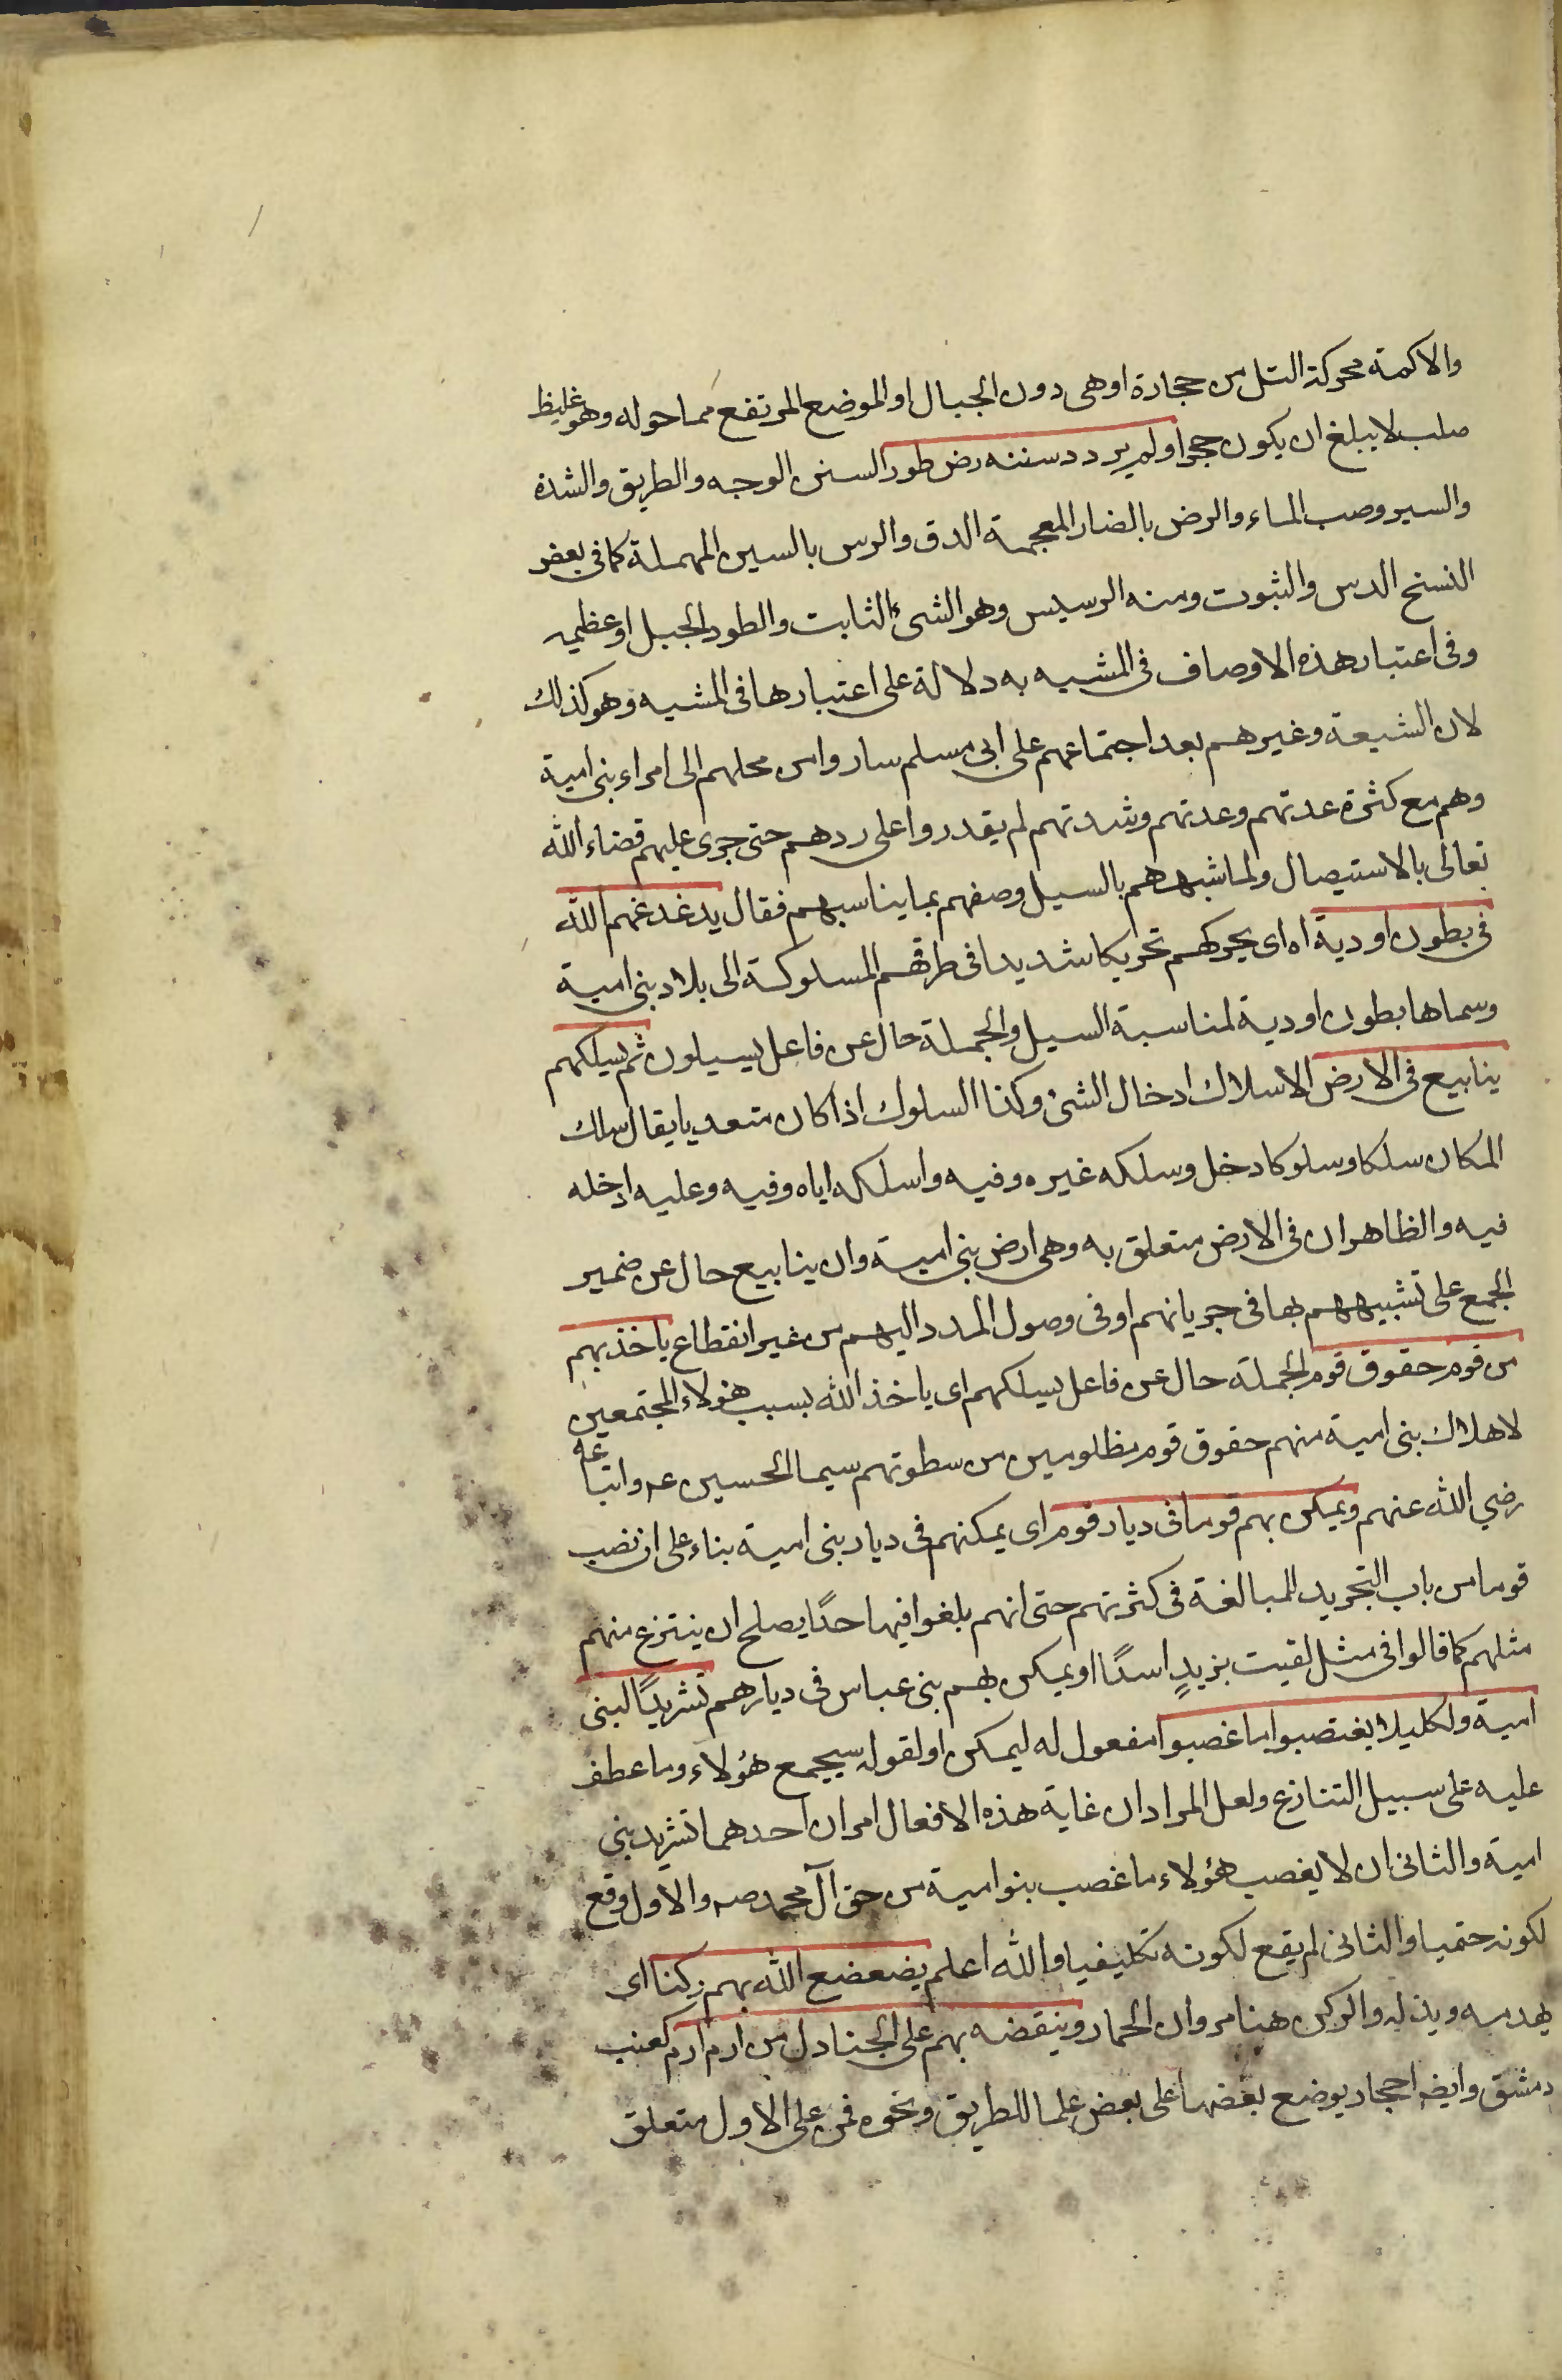 والاكمة محركة التل من حجارة او هى دون الجبال او الموضع المرتفع مما حوله وهو غليظ
صلب لا يبلغ ان يكون حجرا ولم يردد سننه رض طور السنن الوجه والطريق والشدة
والسير وصب الماء والرض بالضار المعجمة الدق والرس بالسين المهملة كما فى بعض
النسخ الدس والثبوت ومنه الرسيس وهو الشئ الثابت والطود الجبل او عظيمه
وفى اعتبار هذه الاوصاف فى المشبه به دلالة على اعتبارها فى المشبه وهو كذلك
لان الشيعة وغيرهم بعد اجتماعهم على ابى مسلم ساروا من محلهم الى امراء بنى امية
وهم مع كثرة عدتهم وعدتهم وشدتهم لم يقدروا على ردهم حتى جرى عليهم قضاء الله
تعالى بالاستيصال ولما شبههم بالسيل وصفهم بما يناسبهم فقال يدغدغهم الله
فى بطون اودية اه اى يحركهم تحريكا شديدا فى طرقهم المسلوكة الى بلاد بنى امية
وسماها بطون اودية لمناسبة السيل والجملة حال عن فاعل يسيلون ثم يسلكهم
ينابيع فى الارض الاسلاك ادخال الشئ وكذا السلوك اذا كان متعديا يقال سلك
المكان سلكا وسلوكا دخل وسلكه غيره وفيه واسلكه اياه وفيه وعليه ادخله
فيه والظاهر ان فى الارض متعلق به وهى ارض بنى امية وان ينابيع حال عن ضمير
الجمع على تشبيههم بها فى جريانهم او فى وصول المدد اليهم من غير انقطاع ياخذ بهم
من قوم حقوق قوم الجملة حال عن فاعل يسلكهم اى ياخذ الله بسبب هؤلاء المجتمعين
لاهلاك بنى امية منهم حقوق قوم مظلومين من سطوتهم سيما الحسين عه واتباعه
رضي الله عنهم ويمكن بهم قوما فى ديار قوم اى يمكنهم فى ديار بنى امية بناء على ان نصب
قوما من باب التجريد للمبالغة فى كثرتهم حتى انهم بلغوا فيها حدًا يصلح ان ينتزع منهم
مثلهم كما قالوا فى مثل لقيت بزيدٍ اسدًا او يمكن بهم بنى عباس فى ديارهم تشريدًا لبنى
امية ولكيلا يغتصبوا ما غصبوا مفعول له ليمكن او لقوله سيجمع هؤلاء وما عطف
عليه على سبيل التنازع ولعل المراد ان غاية هذه الافعال امران احدهما تشريد بنى
امية والثانى ان لا يغصب هؤلاء ما غصب بنو امية من حق آل محمد صه والاول وقع
لكونه حتميا والثانى لم يقع لكونه تكليفيا والله اعلم يضعضع الله بهم ركنا اى
يهدمه ويذله والركن هنا مروان الحمار وينقضه بهم على الجنادل من ارم ارم كعنب
دمشق وايضه احجار يوضع بعضها على بعض علما للطريق ونحوه فمن على الاول متعلق